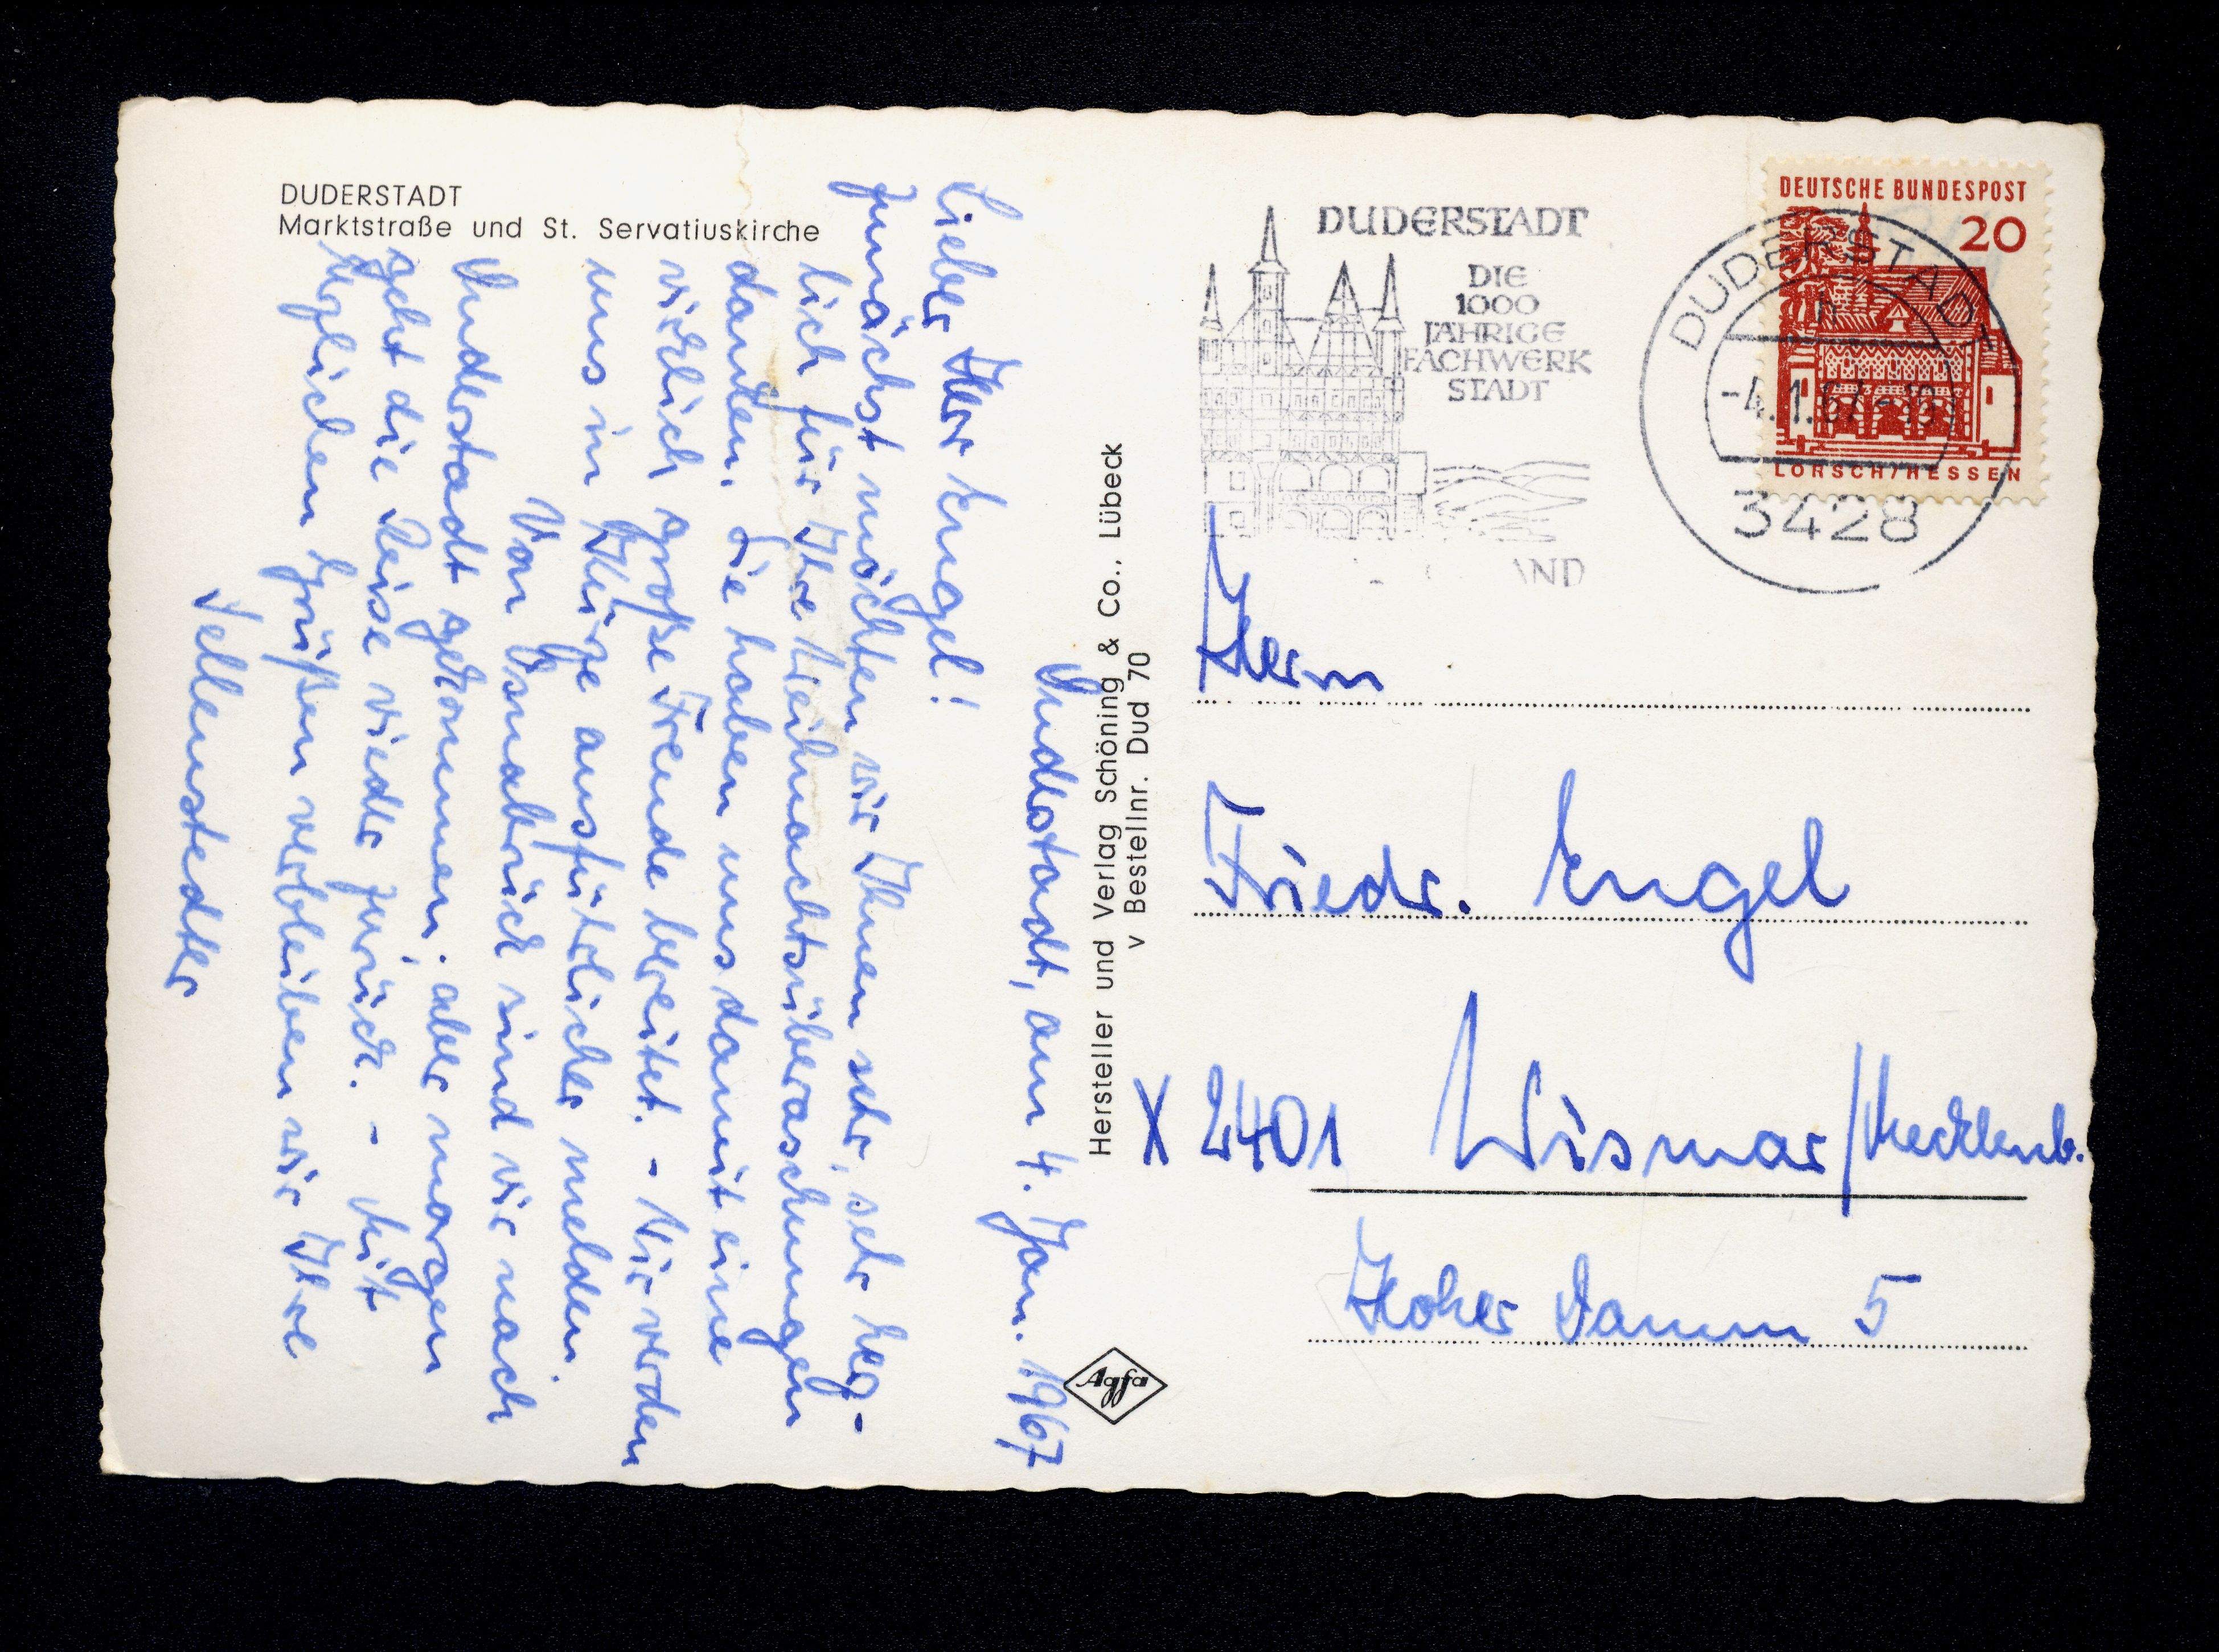 DUDERSTADT
Marktstraße und St. Servatiuskirche
Duderstadt, am 4. Jan. 1967
Lieber Herr Engel!
Zunächst möchten wir Ihnen sehr, sehr herz-
lich für Ihre Weihnachtsüberraschungen
danken. Sie haben uns damit eine
wirklich große Freude bereitet. - Wir werden
uns in Kürze ausführlicher melden.
Von Osnabrück sind wir nach
Duderstadt gekommen; aber morgen
geht die Reise wieder zurück. - Mit
herzlichen Grüßen verbleiben wir Ihre
Tellenstedter
Hersteller und Verlag Schöning & Co., Lübeck
v Bestellnr. Dud 70
Agfa
DUDERSTADT
DIE
1000
JÄHRIGE
FACHWERK
STADT
DEUTSCHE BUNDESPOST
20
LORSCH/HESSEN
DUDERSTADT
-4.1.67
3428
Herrn
Friedr. Engel
X 2401 Wismar/Mecklenb.
Hoher Damm 5